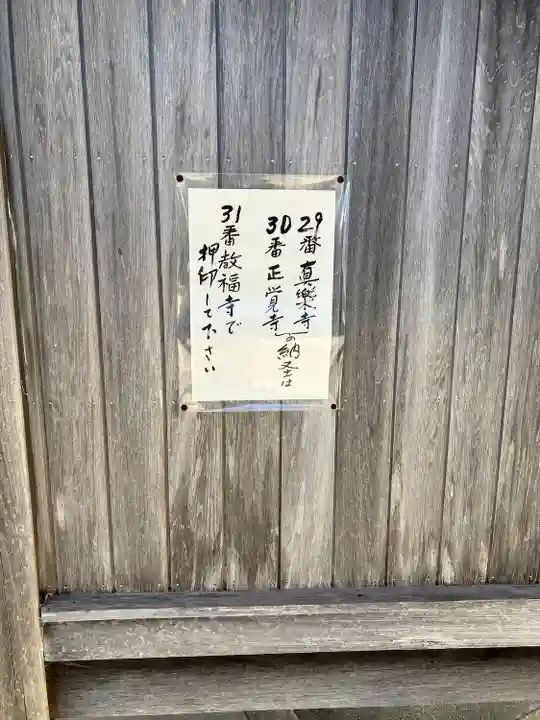 29番 真樂寺
30番 正覚寺
の納圣は
31番教福寺で
押印して下さい